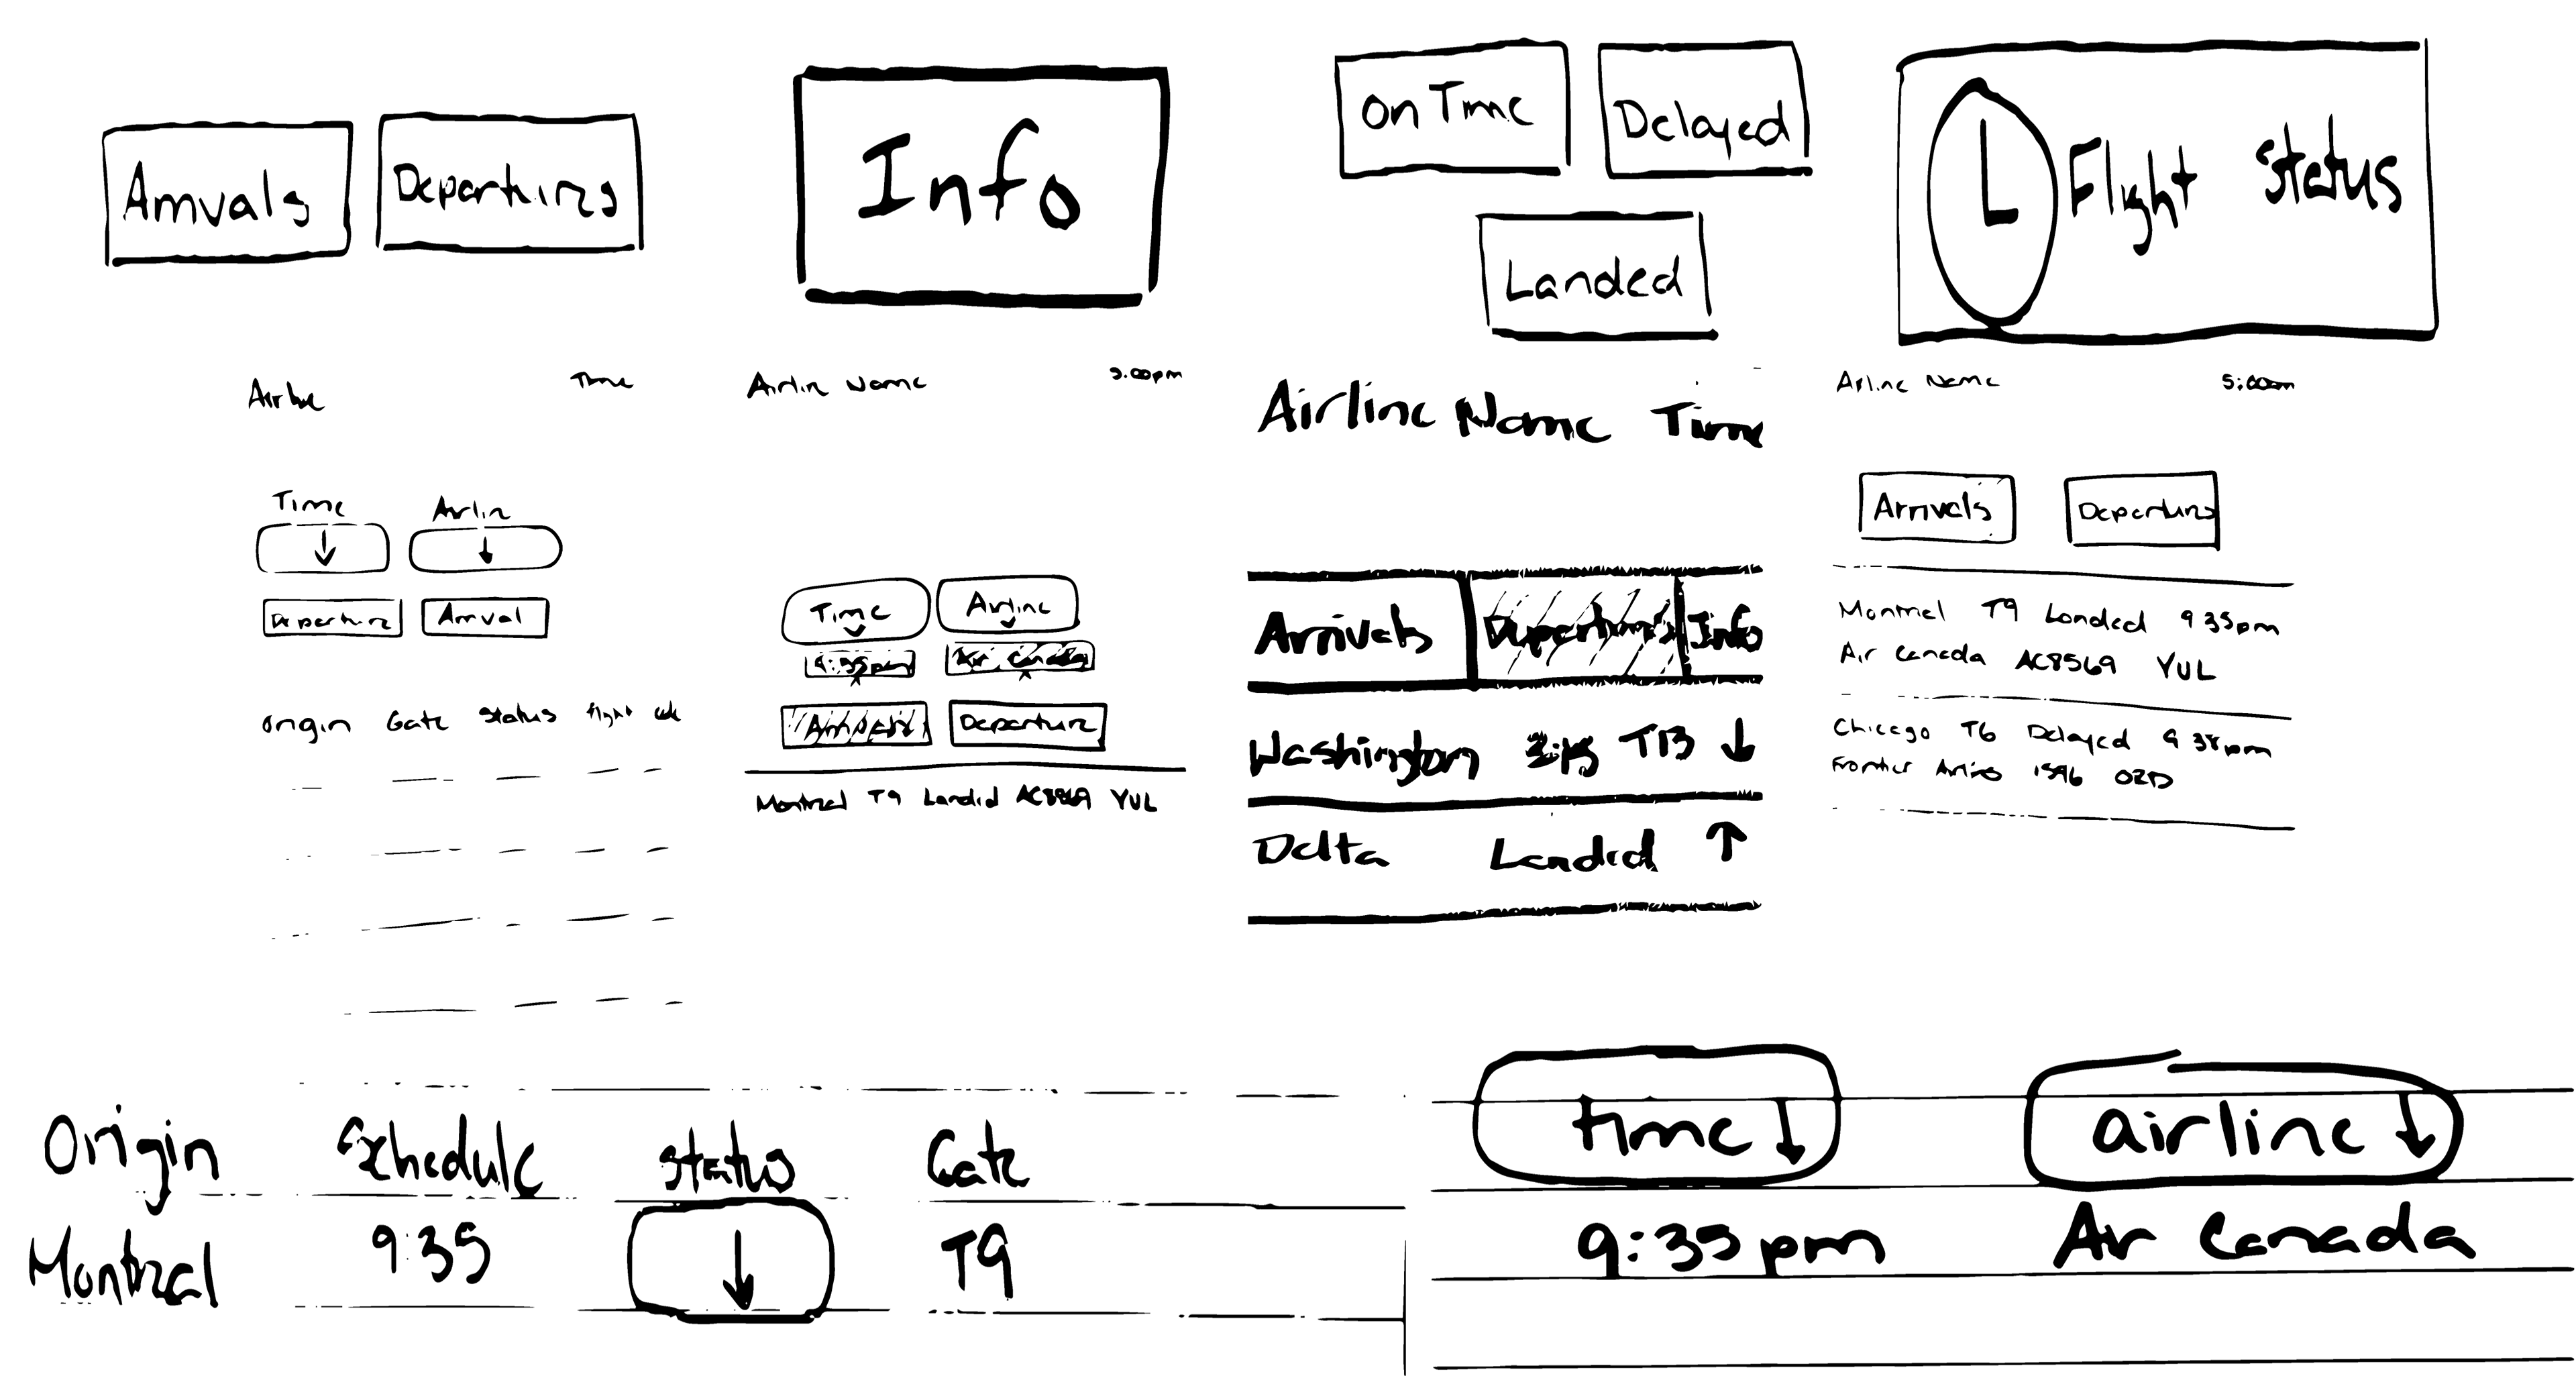 Arrivals Departures
Info
on Time Delayed
Landed
L Flight Status
Airline Time
Time Airline
Departure Arrival
origin Gate status flight
Airline Name 9:00pm
Time Airline
9:35pm Air Canada
Arrivals Departure
Montreal T9 Landed AC8569 YUL
Airline Name Time
Arrivals Departures Info
Washington T13 ↓
Delta Landed ↑
Airline Name 5:00am
Arrivals Departures
Montreal T9 Landed 9 35pm
Air Canada AC8569 YUL
Chicago T6 Delayed 9 38pm
Frontier Airlines 1596 ORD
Origin Schedule status Gate
Montreal 9:35 ↓ T9
time ↓ airline ↓
9:35pm Air Canada